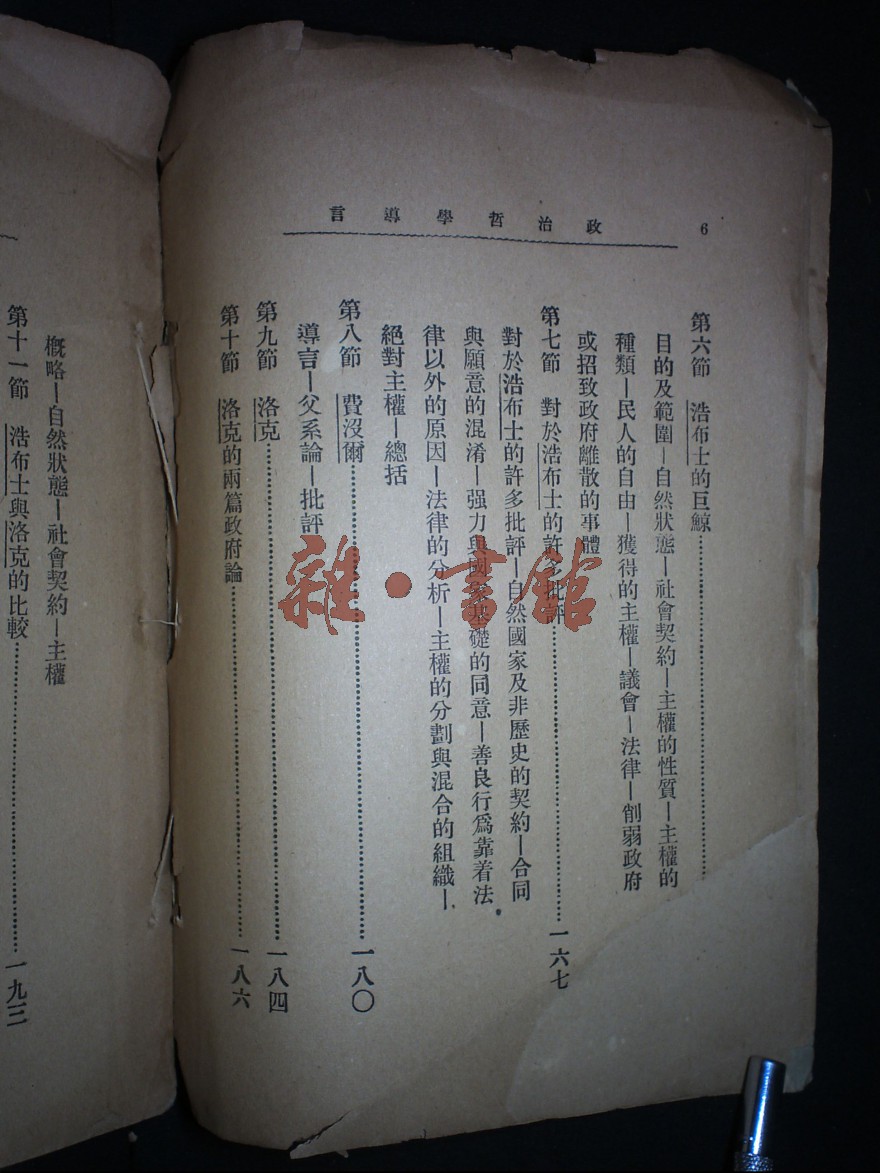 政治哲學導言
6
第六節 浩布士的巨鯨
目的及範圍—自然狀態—社會契約—主權的性質—主權的
種類—民人的自由—獲得的主權—議會—法律—削弱政府
或招致政府離散的事體
第七節 對於浩布士的許多批評 一六七
對於浩布士的許多批評—自然國家及非歷史的契約—合同
與願意的混淆—强力與國家基礎的同意—善良行爲靠着法
律以外的原因—法律的分析—主權的分劃與混合的組織—
絕對主權—總括
第八節 費沒爾 一八〇
導言—父系論—批評
第九節 洛克 一八四
第十節 洛克的兩篇政府論 一八六
概略—自然狀態—社會契約—主權
第十一節 浩布士與洛克的比較 一九三
雜·書館